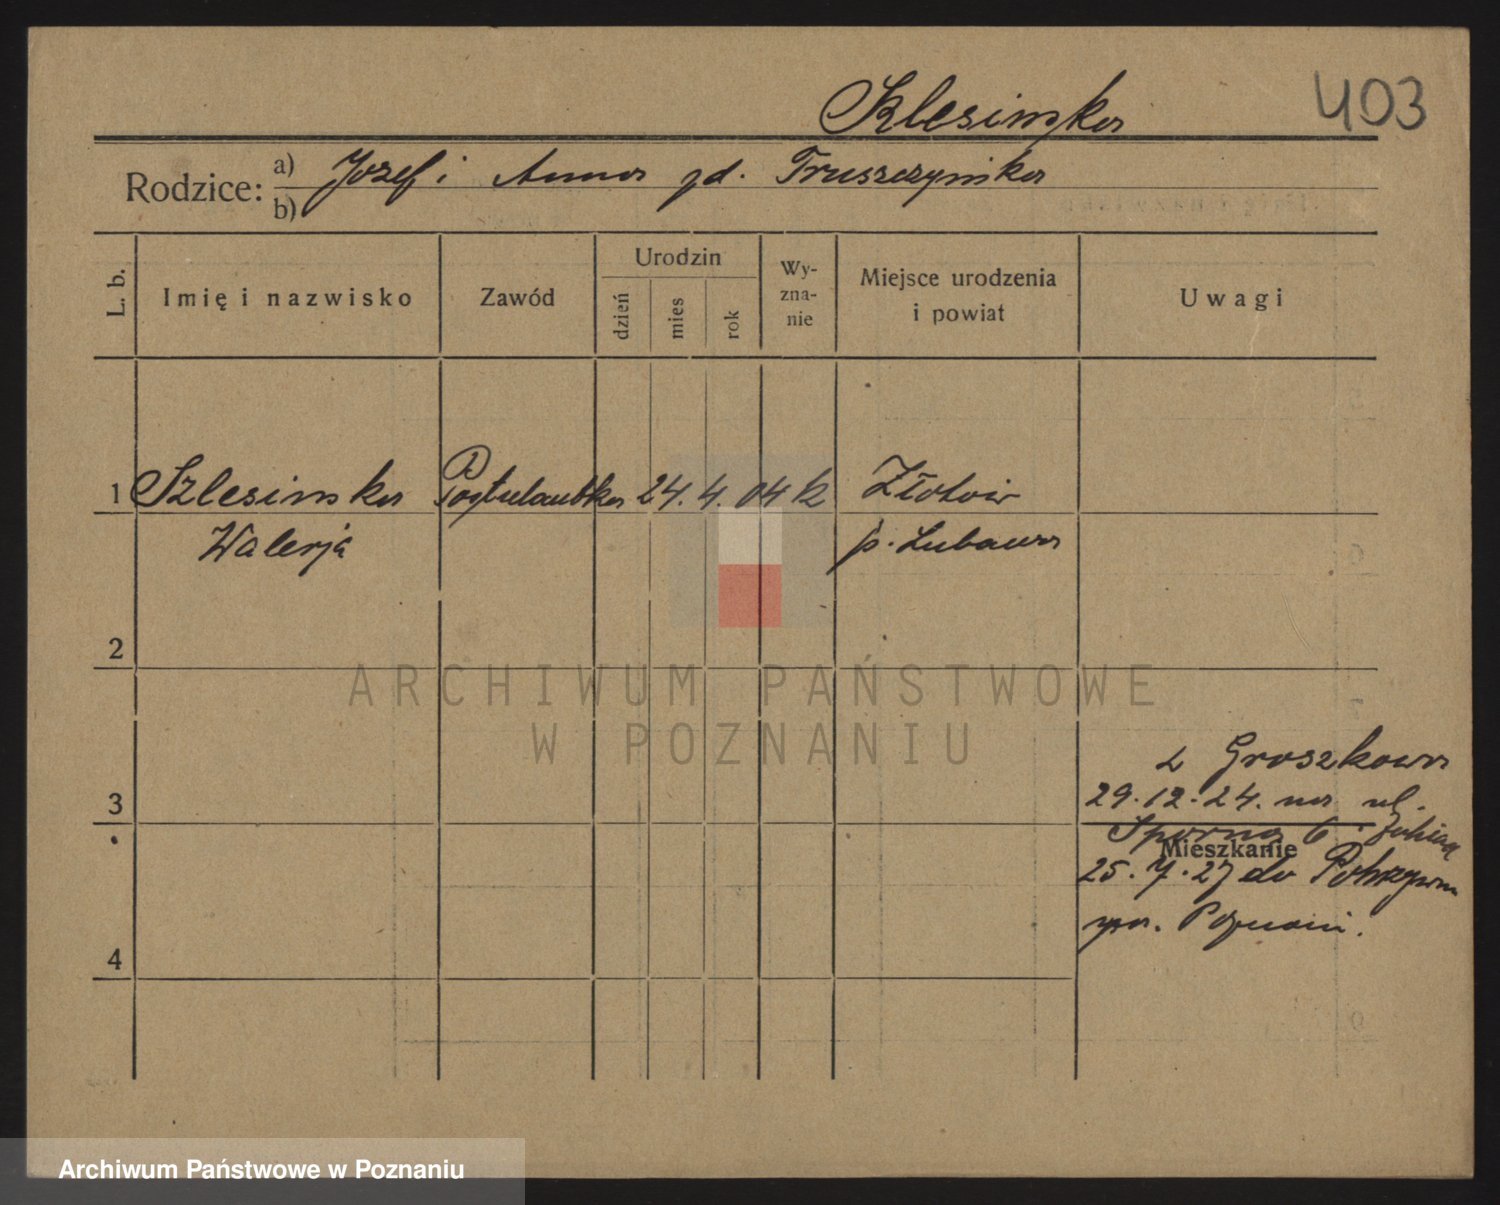 Szlesinska 403
Rodzice: a) Józef i Anna zd. Truszczynska
b)
L. b. Imię i nazwisko Zawód Urodzin dzień mies rok Wy-zna-nie Miejsce urodzenia i powiat Uwagi
1 Szlesinska Postulantka 24. 4. 04 k Złotow
Walerja p. Lubawa
2
ARCHIWUM PAŃSTWOWE
W POZNANIU
z Groszkowa
3 29.12.24. na ul.
Sporna 6
Mieszkanie
25.7.27 do
Poznań.
4
Archiwum Państwowe w Poznaniu